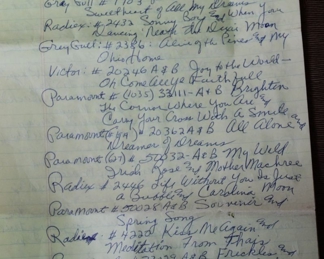 Gray Gull # 1103
Sweetheart of All My Dreams
Radiex # 2432 Sonny Boy & When You
Dancing Neath the Dixie Moon
Grey Gull # 2386 - Along the Pines & My
Ohio Home
Victor # 20246 A & B Joy to the World -
Oh Come All Ye Faithfull
Paramount # (1035) 33111-A & B Brighten
The Corner Where You Are &
Carry Your Cross With A Smile
Paramount # 20362 A & B All Alone &
Dreamer of Dreams
Paramount (67) # A & B My Wild
Irish Rose & Mother Machree
Radiex # 2446 Life Without You Is Just
a Bubble & Carolina Moon
Paramount # 50028 A & B Souvenir and
Spring Song "
Radiex # 4220 Kiss Me Again &
Meditation From Thays
A & B Freckles &